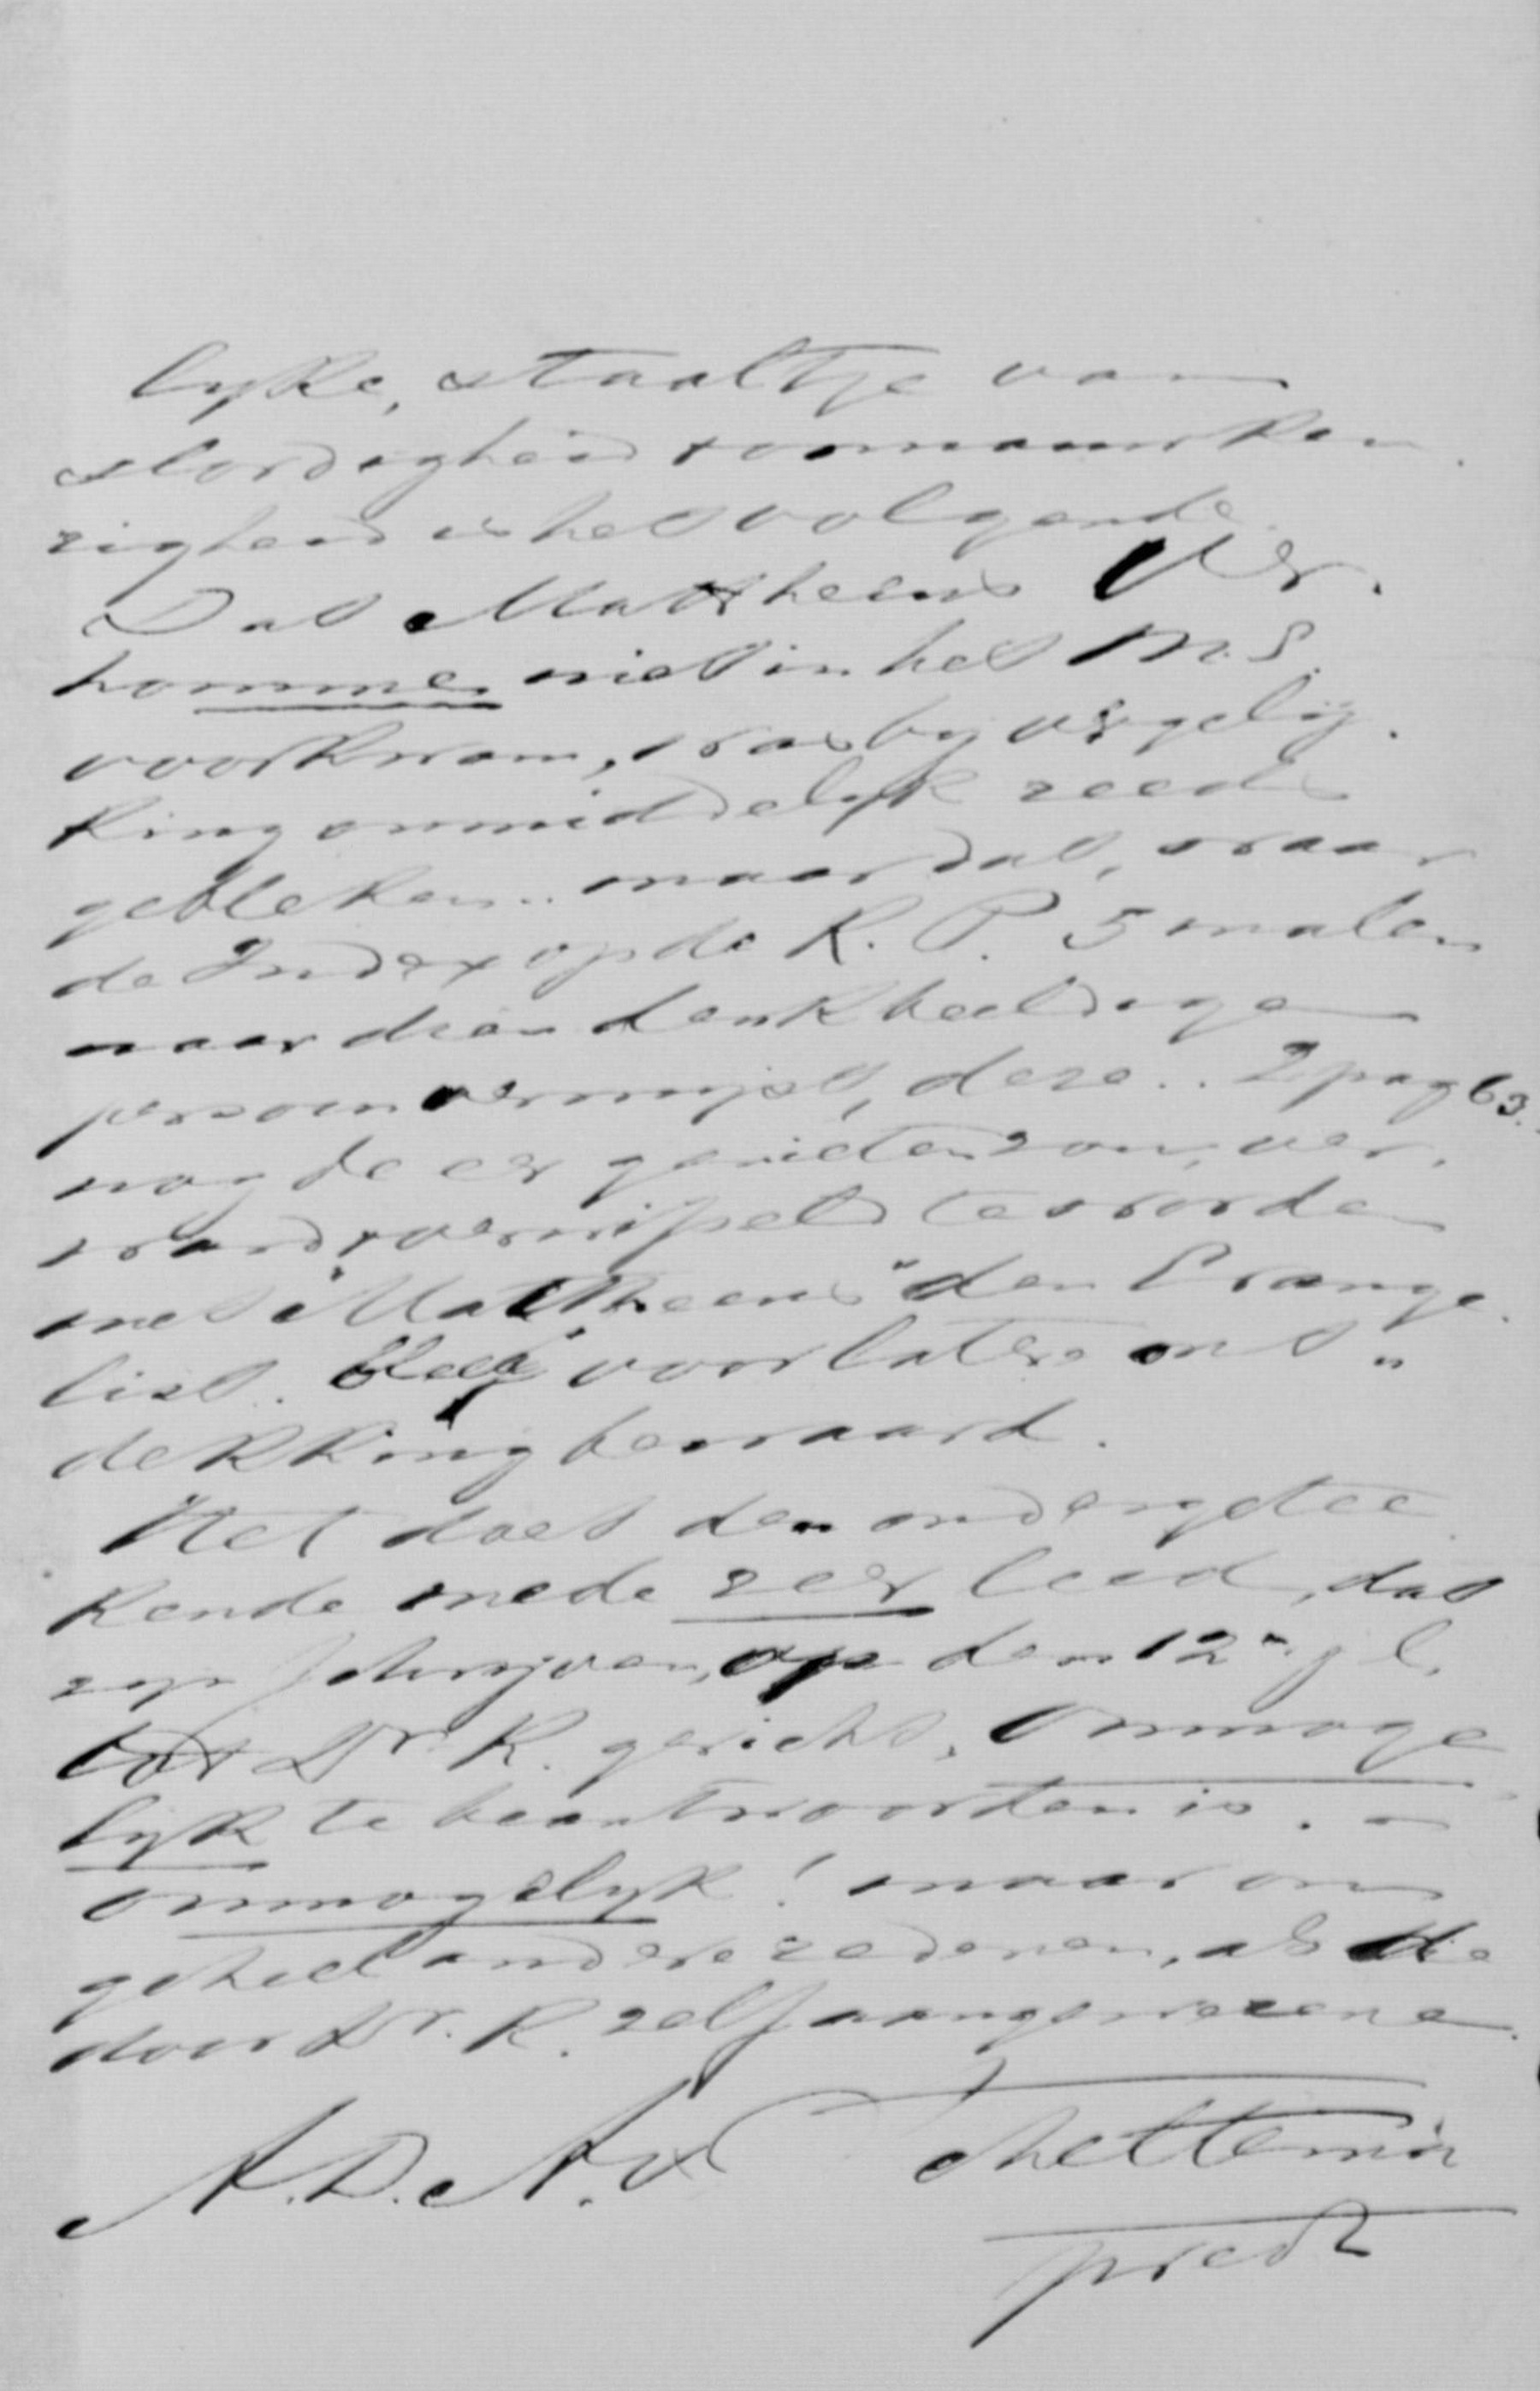 lyke, staaltje van
slordigheid & onnauwkeu
righeid is het volgende.
Dat Mattheeus Ver.
hommes niet in het M.S.
voorkwam, was by vergely.
king onmiddelyk reeds
gebleken.. maar dat, waar
de Index op de K. P. 5 malen
naar dien denkbeeldige
persoon verwyst, deze .. 2 pag 63.
nog de eer genieten zou, ver,
ward & verwisseld te worden
met "Mattheeus" den Evange
list. bleef voor latere ont"
dekking bewaard.
Het doet den ondergetee
kende mede zeer leed, dat
zyn schryven, op den 12n jl.
tot Dr. K. gericht, onmoge
lyk te beantwoorden is. -
onmogelyk! maar om
geheel andere redenen, als die
door Dr. K. zelf aangewezene.
A. D. N.
Schettema
predt